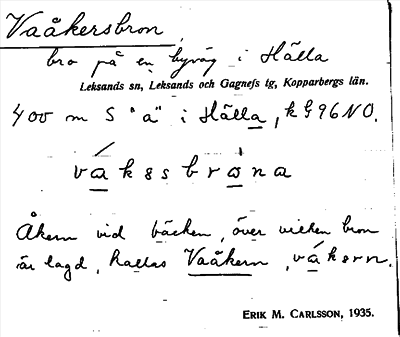 Vaåkersbron,
bro på en byväg i Hälla
Leksands sn, Leksands och Gagnefs tg, Kopparbergs län.
400 m S "a" i Hälla, k G96NO.
vakssbrona
Åkern vid bäcken, över vilken bron
är lagd, kallas Vaåkern, våksrn.
ERIK M. CARLSSON, 1935.